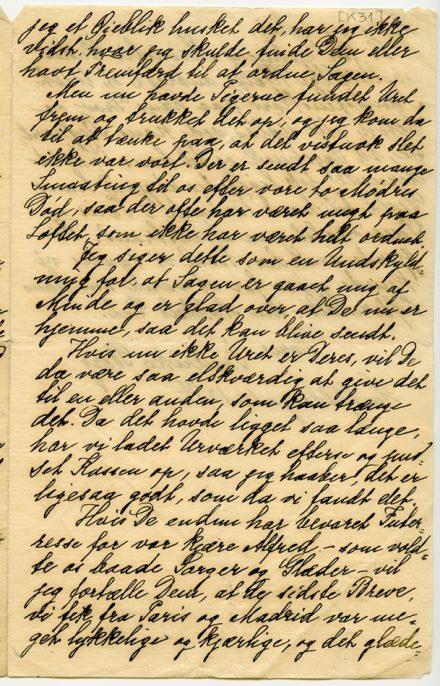 [K31]
jeg et Øieblik husket det, har jeg ikke
vidst, hvor jeg skulde finde Dem eller
havt Fremfærd til at ordne Sagen.
Men nu havde Pigerne fundet Uret
frem og trukket det op, og jeg kom da
til at tænke paa, at det vistnok slet
ikke var vort. Der er sendt saa mange
Smaating til os efter vore to Mödres
Död, saa der ofte har været nogt paa
Loftet, som ikke har været helt ordnet.
Jeg siger dette som en Undskyld-
ning for, at Sagen er gaaet mig af
Minde og er glad over, at De nu er
hjemme, saa det kan blive sendt.
Hvis nu ikke Uret er Deres, vil De
da være saa elskværdig at give det
til en eller anden, som kan trænge
det. Da det havde ligget saa længe,
har vi ladet Urværket efterse og pud-
set Kassen op, saa jeg haaber, det er
ligesaa godt, som da vi fandt det.
Hvis De endnu har bevaret Inte-
resse for vor kjære Alfred – som vold-
te os baade Sorger og Glæder – vil
jeg fortælle Dem, at de sidste Breve,
vi fik fra Paris og Madrid var me-
get lykkelige og kjærlige, og det glæde-